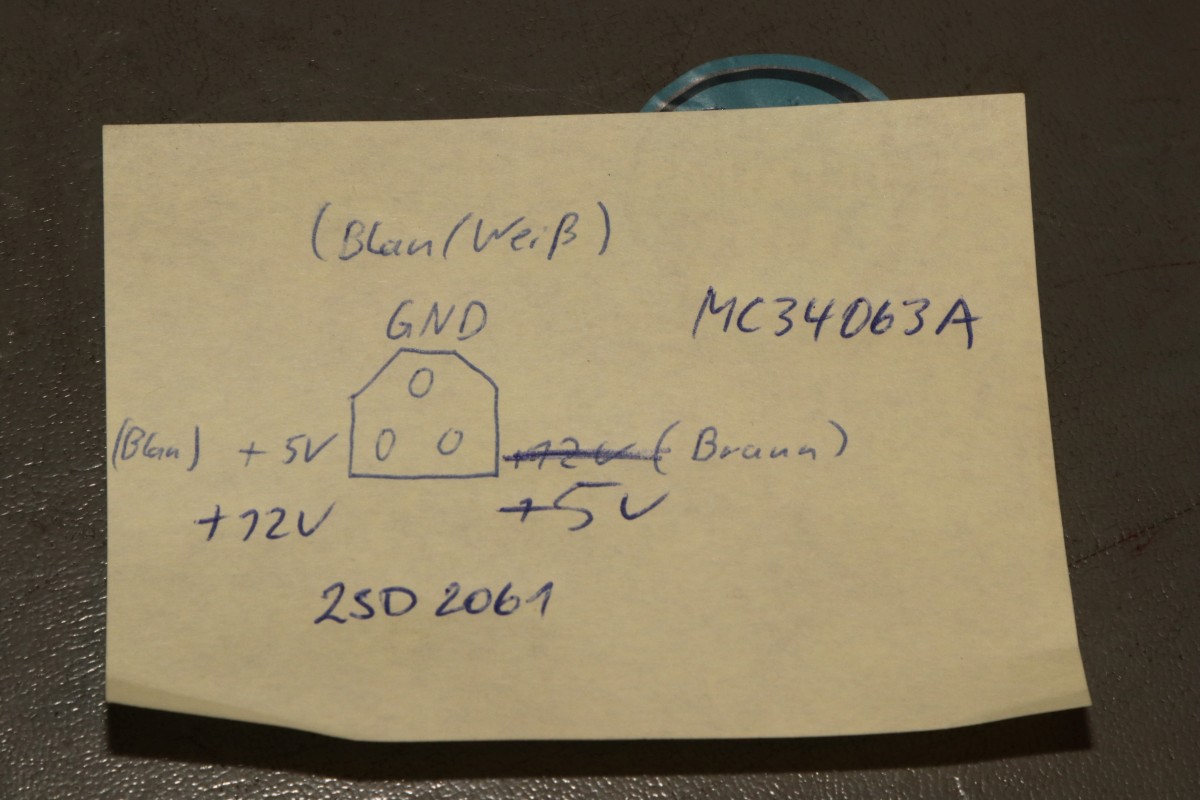 (Blau/Weiß)
GND
MC34063A
(Blau) +5V +12V (Braun)
+12V +5V
2SD2061